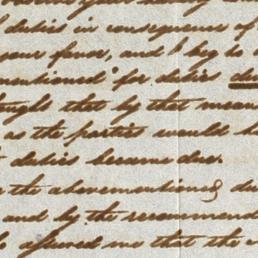 duties in consequence of
your favor, and I beg to
mentioned for duties
thought that by that mean
as the parties would
duties became due.
the abovementioned du
and by the recommend
assured me that the